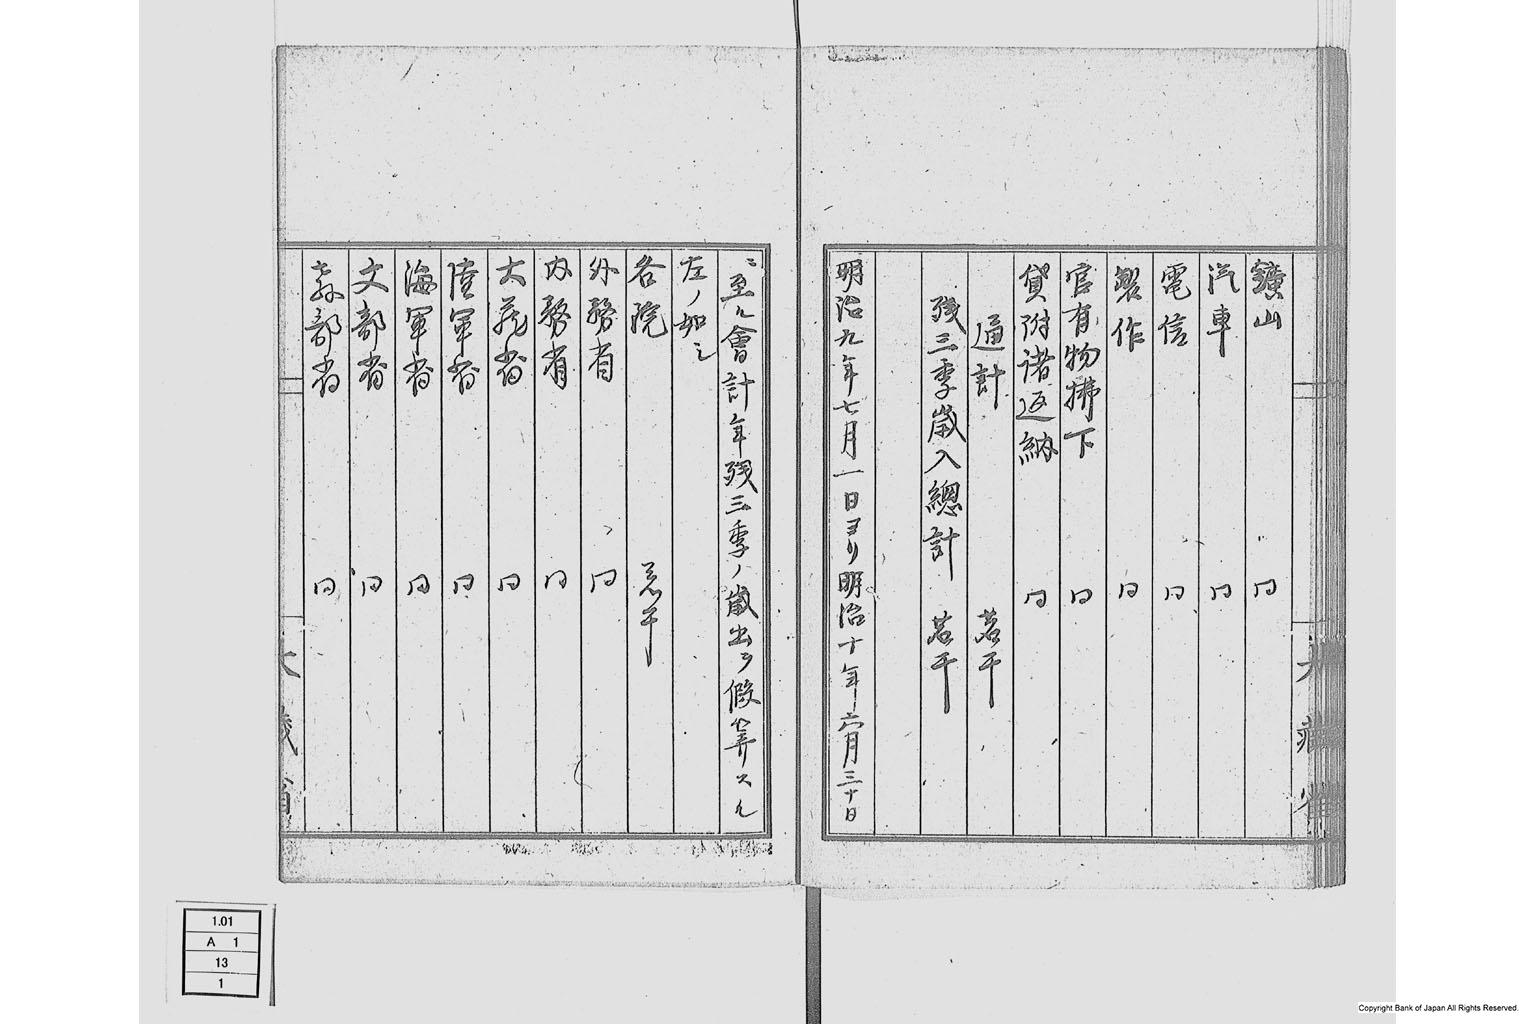 鑛山 同
汽車 同
電信 同
製作 同
官有物拂下 同
貸附諸返納 同
通計 若干
残三季歳入總計 若干
明治九年七月一日ヨリ明治十年六月三十日
ニ至ル會計年残三季ノ歳出ヲ假算スル
左ノ如シ
各院 若干
外務省 同
内務省 同
大蔵省 同
陸軍省 同
海軍省 同
文部省 同
教部省 同
大藏省
大藏省
1.01
A 1
13
1
Copyright Bank of Japan All Rights Reserved.